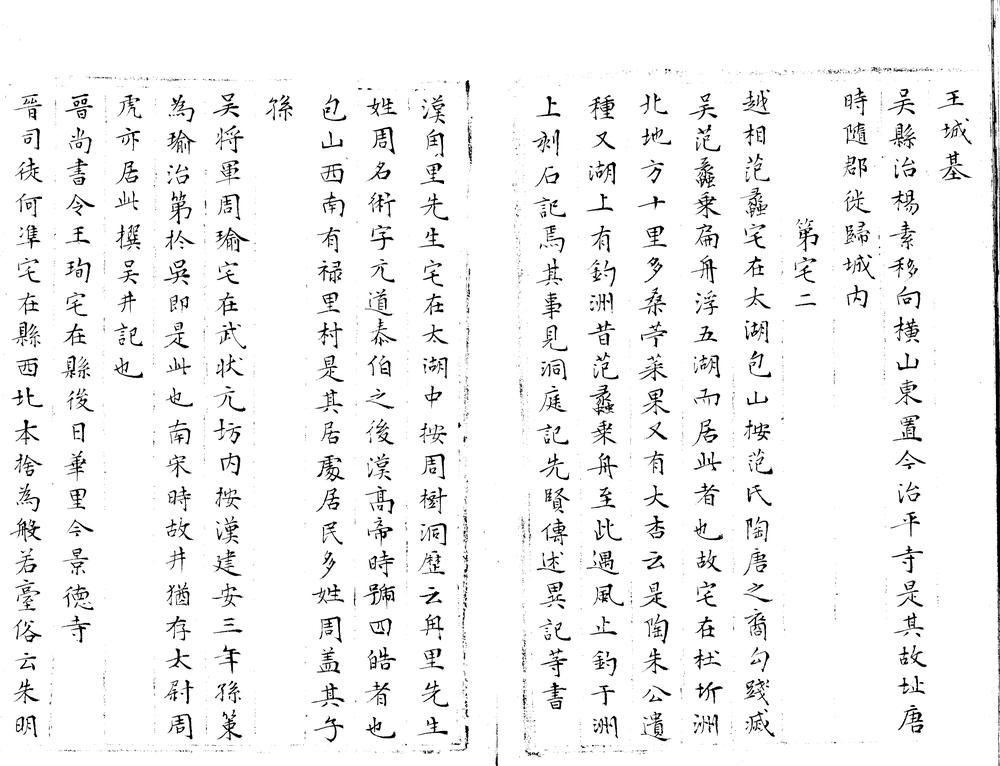 王城基
吳縣治楊素移向橫山東置今治平寺是其故址唐
時隨郡徙歸城內
第宅二
越相范蠡宅在太湖包山按范氏陶唐之裔勾踐滅
吳范蠡乗扁舟浮五湖而居此者也故宅在杜圻洲
北地方十里多桑苧菜果又有大杏云是陶朱公遺
種又湖上有釣洲昔范蠡乗舟至此遇風止釣于洲
上刻石記焉其事見洞庭記先賢傳述異記等書
漢甪里先生宅在太湖中按周樹洞歴云甪里先生
姓周名術字元道泰伯之後漢髙帝時號四皓者也
包山西南有禄里村是其居處居民多姓周盖其子
孫
吳将軍周瑜宅在武状元坊内按漢建安三年孫策
為瑜治第扵吳即是此也南宋時故井猶存太尉周
虎亦居此撰吴井記也
晉尚書令王珣宅在縣後日華里今景徳寺
晉司徒何凖宅在縣西北本捨為般若臺俗云朱明